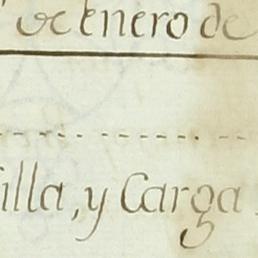 de Enero de
illa, y Carga